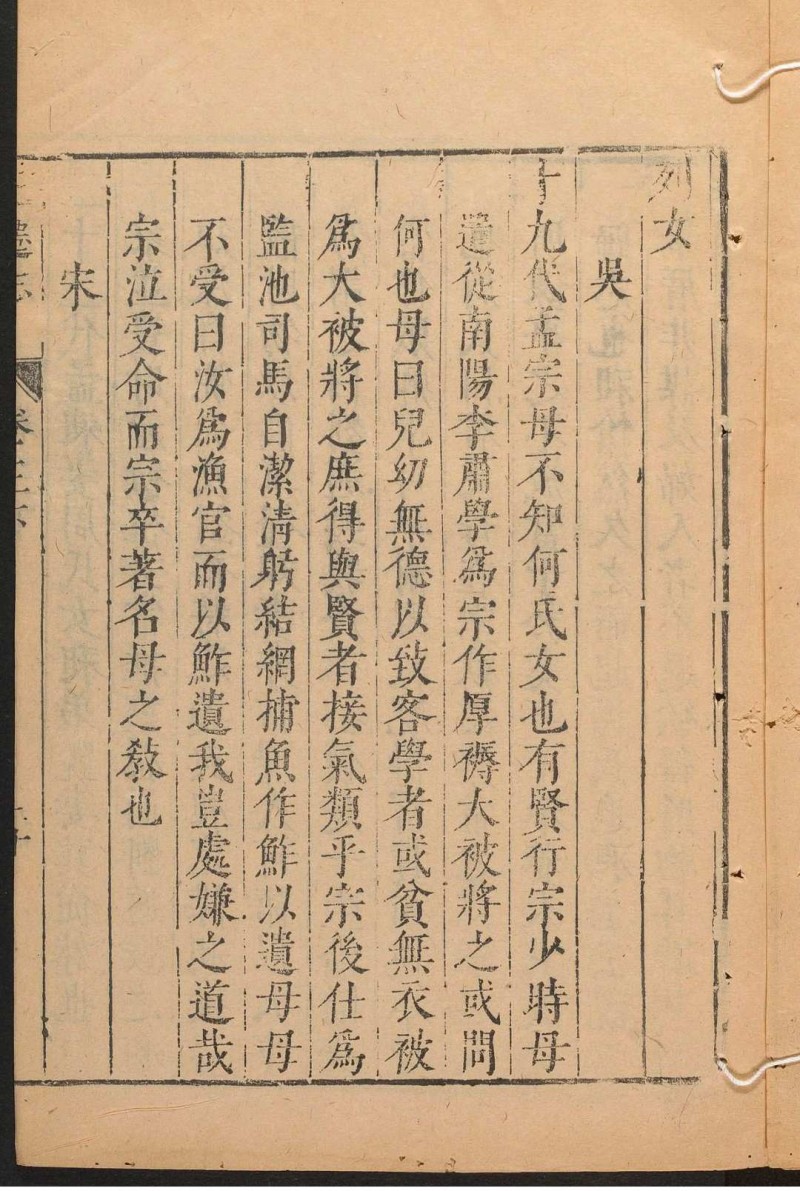 列女
吳
十九代孟宗母不知何氏女也有賢行宗少時母
遣從南陽李肅學爲宗作厚褥大被將之或問
何也母曰兒幼無德以致客學者或貧無衣被
爲大被將之庶得與賢者接氣類乎宗後仕爲
監池司馬自潔清躬結網捕魚作鮓以遺母母
不受曰汝爲漁官而以鮓遺我豈處嫌之道哉
宗泣受命而宗卒著名母之敎也
宋